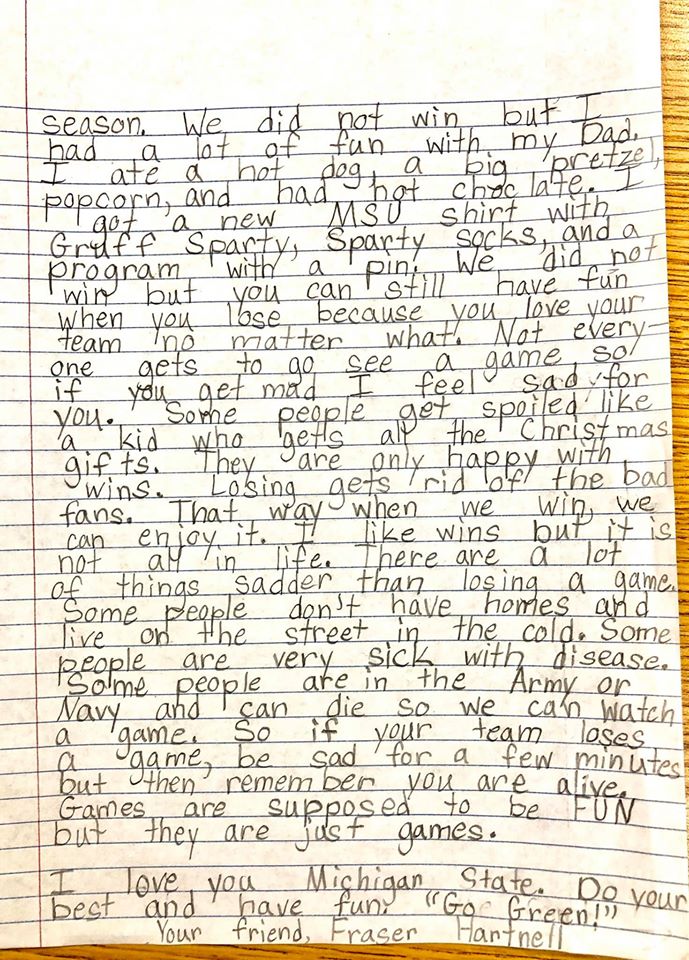 season. We did not win but I
had a lot of fun with my Dad.
I ate a hot dog, a big pretzel,
popcorn, and had hot choc late. I
got a new MSU shirt with
Gruff Sparty, Sparty socks, and a
program with a pin. We did not
win but you can still have fun
when you lose because you love your
team no matter what. Not every-
one gets to go see a game so
if you get mad I feel sad for
you. Some people get spoiled like
a kid who gets all the Christmas
gifts. They are only happy with
wins. Losing gets rid of the bad
fans. That way when we win, we
can enjoy it. I like wins but it is
not all in life. There are a lot
of things sadder than losing a game.
Some people don't have homes and
live on the street in the cold. Some
people are very sick with disease.
Some people are in the Army or
Navy and can die so we can watch
a game. So if your team loses
a game, be sad for a few minutes
but then remember you are alive.
Games are supposed to be FUN
but they are just games.
I love you Michigan State. Do your
best and have fun. "Go Green!"
Your friend, Fraser Hartnell